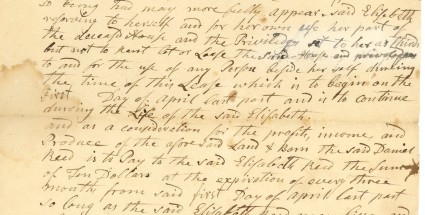 so being that may more fully appear, said Elisabeth
reserving to herself and for her own use her part of
the Deceased House and the Priviledges set to her as thirds
but not to Rent Let or Lease the said House and priviledges
to and for the use of any Person beside her self during
the time of this Lease which is to begin on the
First Day of April last part and is to continue
during the Life of the said Elisabeth.
and as a consideration for the profits, income and
Produce of the afore said Land & Barn the said Daniel
Reed is to Pay to the said Elisabeth Reed the Sum
of Ten Dollars at the expiration of every three
month from said First Day of April last part
so long as the said Elisabeth